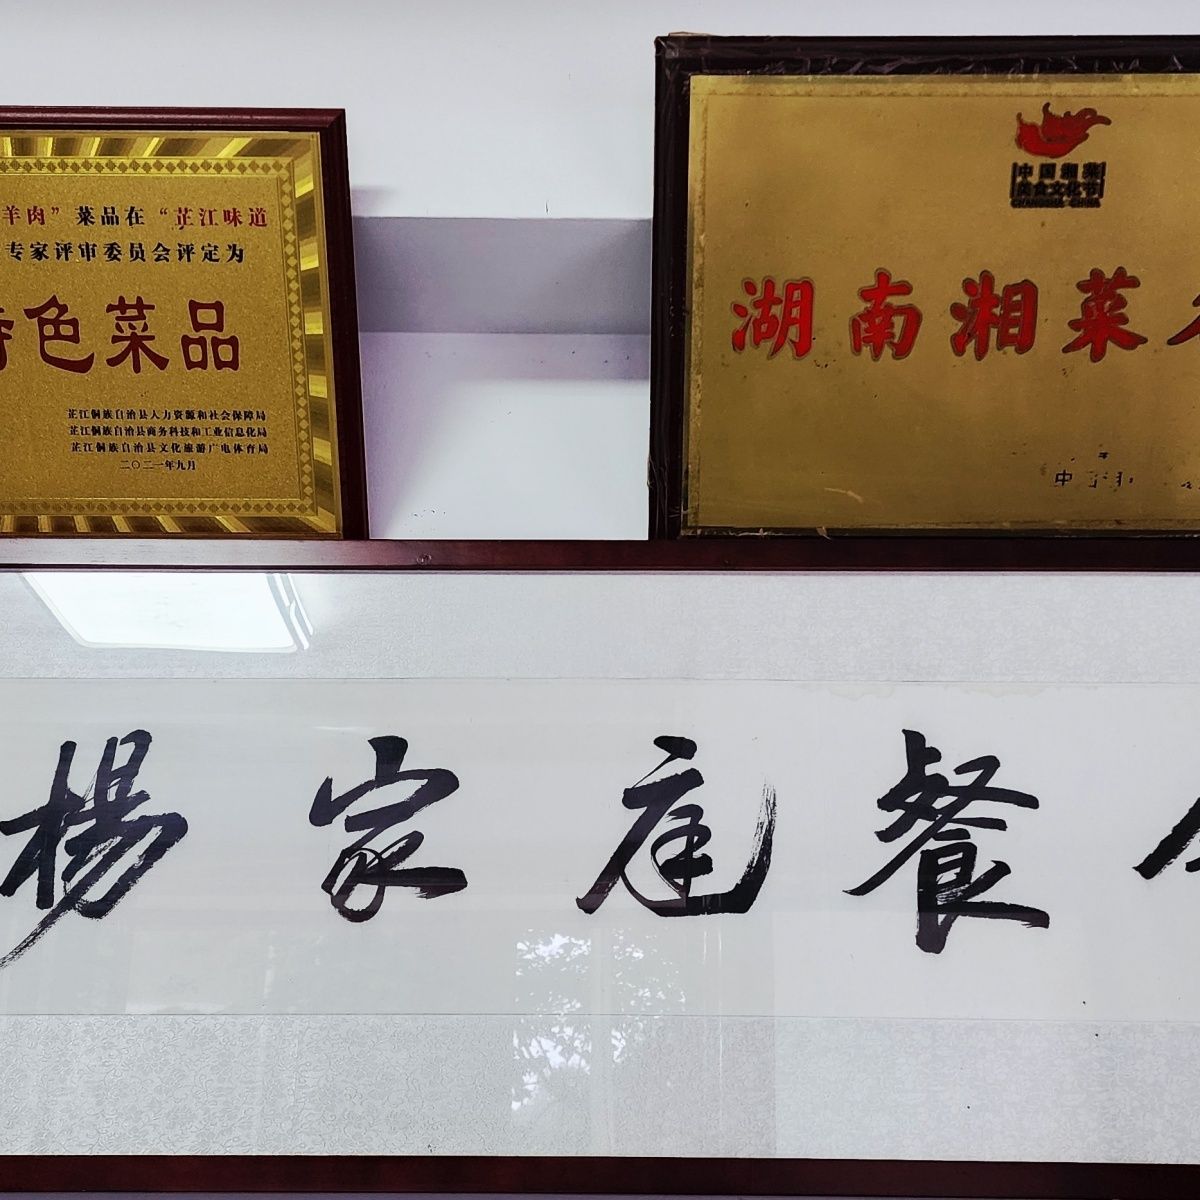 羊肉”菜品在“芷江味道
专家评审委员会评定为
色菜品
芷江侗族自治县人力资源和社会保障局
芷江侗族自治县商务科技和工业信息化局
芷江侗族自治县文化旅游广电体育局
二〇二一年九月
中国湘菜
美食文化节
CHANGSHA CHINA
湖南湘菜
中
楊家庭餐